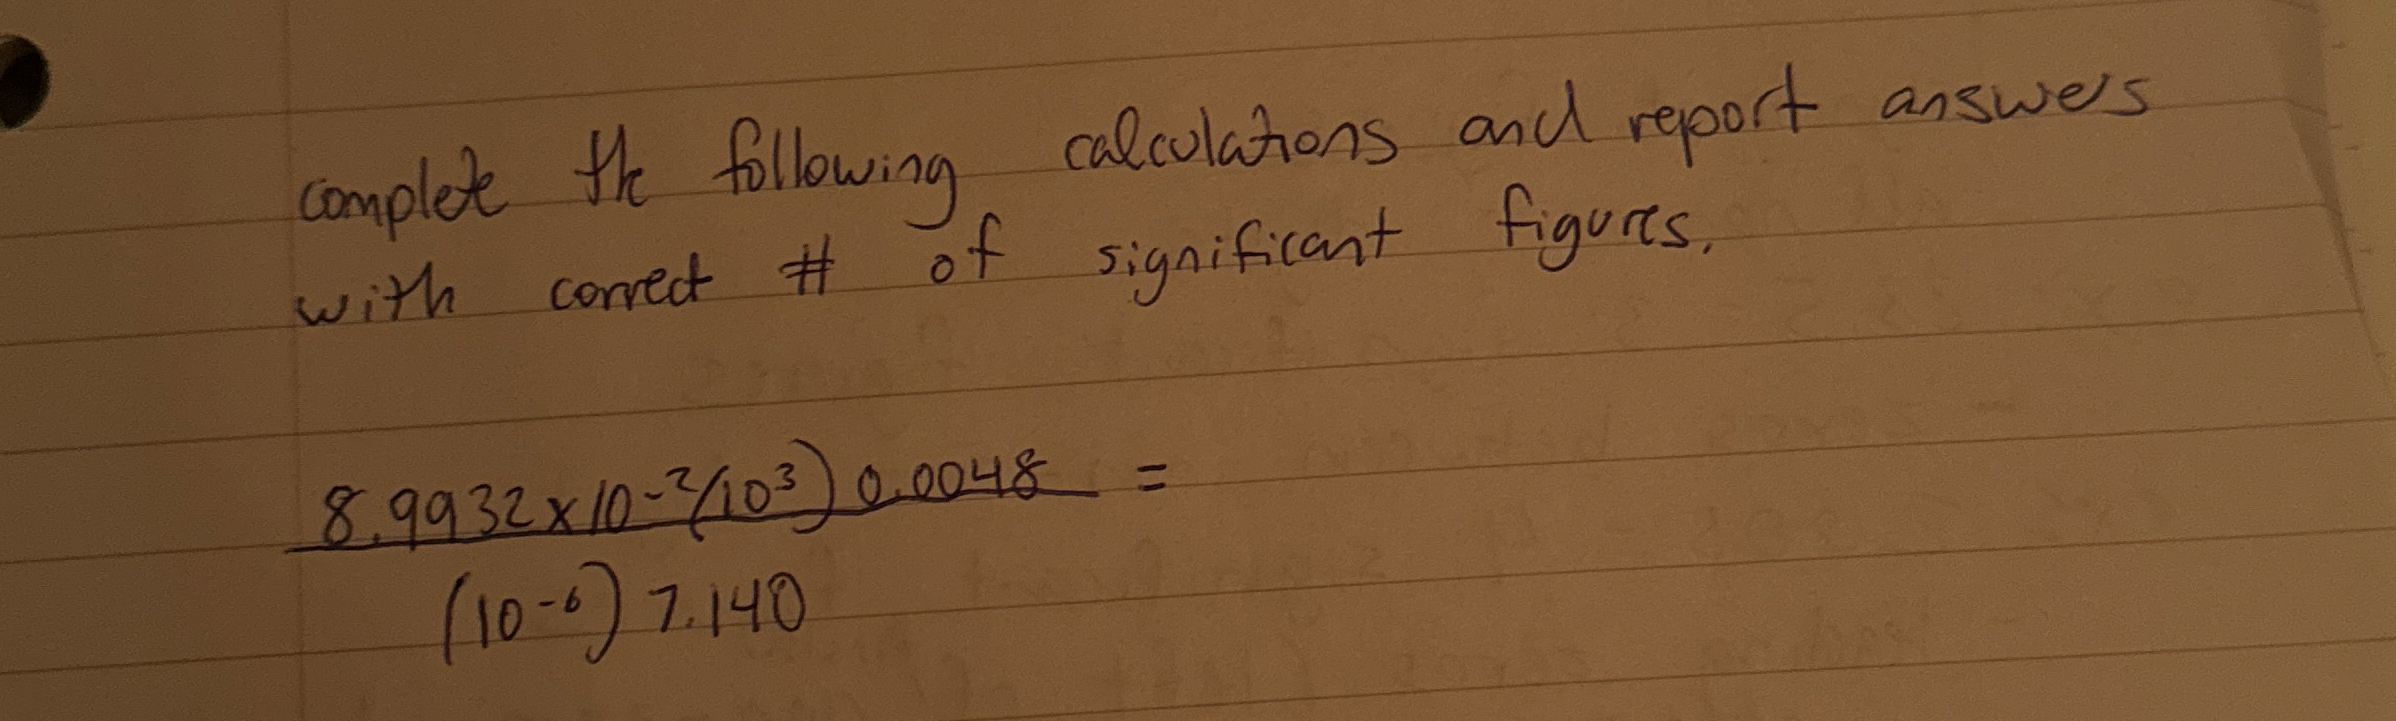 complete the following calculations and report answers
with correct # of significant figures.
8.9932x10-²(10³) 0.0048 =
(10-⁶) 7.140